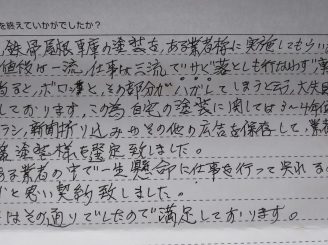 を終えていかがでしたか?
鉄骨屋根車庫の塗装を、ある業者様に実施してもらい
値段は一流、仕事は三流でサビ落としも行なわず
ると、ボロ々と、その部分がハガレてしまうと云う、大失
しております。この為自宅の塗装に関しては3〜4年
ラシ、新聞折り込みやその他の広告を保存して、業者
塗装様を選定致しました。
る業者の中で一生懸命に仕事を行って呉れる
と思い契約致しました。
はその通りでしたので満足しております。